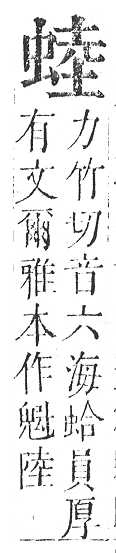 蛙
力竹切音六海蛤員厚
有文爾雅本作魁陸